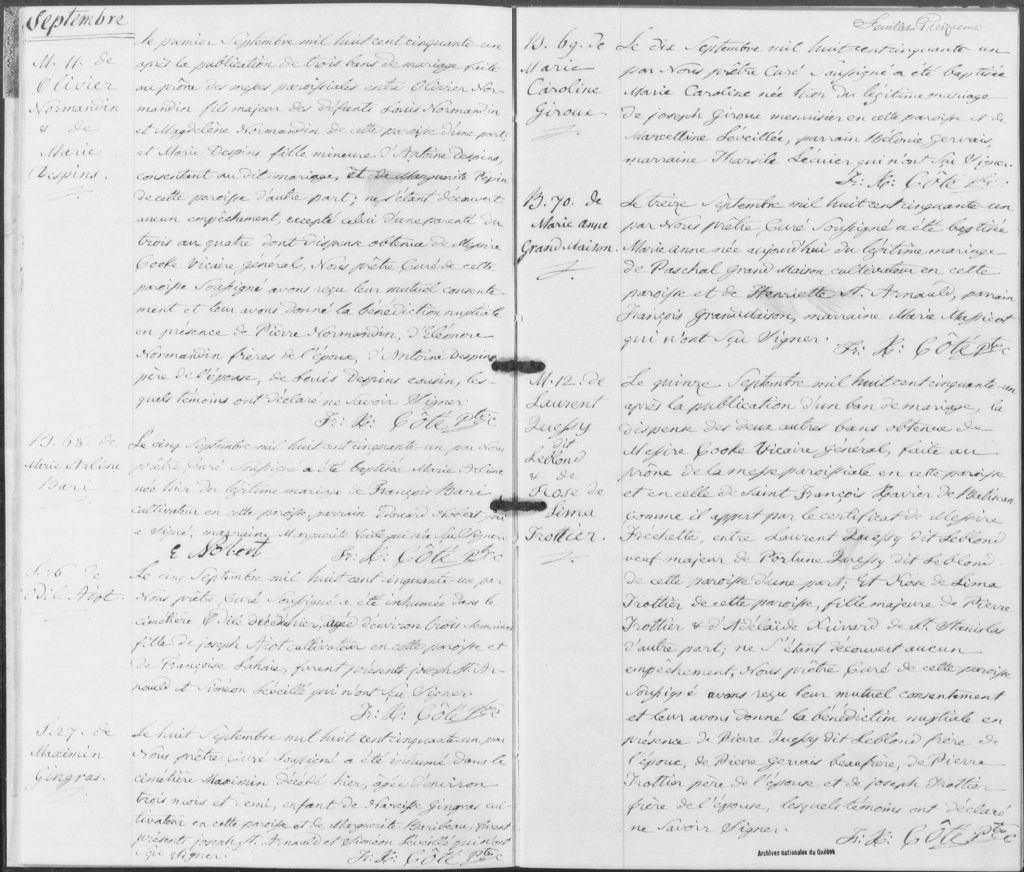 Septembre
M. 11. de
Olivier
Normandin
& de
Marie
Despins.
Le premier Septembre mil huit cent cinquante un
après la publication de trois bans de mariage faite
au prône des messes paroissiales entre Olivier Nor-
mandin fils majeur des défunts Louis Normandin
et Magdelène Normandin de cette paroisse d'une part;
et Marie Despins fille mineure d'Antoine Despins,
consentant au dit mariage, et de Marguerite Pepin
de cette paroisse d'autre part; ne s'étant découvert
aucun empêchement, excepté celui d'une parenté du
trois au quatre dont dispense obtenue de Messire
Cooke Vicaire général, Nous prêtre Curé de cette
paroisse Soussigné avons reçu leur mutuel consente-
ment et leur avons donné la bénédiction nuptiale
en présence de Pierre Normandin, d'Eléonore
Normandin frères de l'époux, d'Antoine Despins
père de l'épouse, de Louis Despins cousin, les-
quels temoins ont déclaré ne Savoir Signer.
Fr: X: Côté Ptre
B. 68. de
Marie Arline
Bari
Le cinq Septembre mil huit cent cinquante un par Nous
prêtre Curé Soussigné a été baptisée Marie Arline
née hier du légitime mariage de François Bari
cultivateur en cette paroisse, parrain Edouard Norbert qui
a Signé, marraine Marguerite qui n'a Su Signer.
E Norbert
Fr: X: Côté Ptre
S. 26. de
Odile Asot.
Le cinq Septembre mil huit cent cinquante un par
Nous prêtre Curé Soussigné a été inhumée dans le
cimétière Odile décédée hier, agée d'environ trois semaines
fille de joseph cultivateur en cette paroisse et
de Françoise Lahaie, furent présents joseph St. Ar-
nauld et Siméon Léveillé qui n'ont Su Signer.
Fr: X: Côté Ptre
S. 27. de
Maximin
Gingras.
Le huit Septembre mil huit cent cinquante un, par
Nous prêtre Curé Soussigné a été inhumé dans le
cimétière Maximin décédé hier, agée d'environ
trois mois et demi, enfant de Narcisse Gingras cul-
tivateur en cette paroisse et de Marguerite Baribeau, furent
présents joseph St. Arnauld et Siméon Léveillé qui n'ont
Su Signer.
Fr: X: Côté Ptre
Feuillet Treizieme
B. 69. de
Marie
Caroline
Giroue
Le dix Septembre mil huit cent cinquante un
par Nous prêtre Curé Soussigné a été baptisée
Marie Caroline née hier du légitime mariage
de joseph Giroue menuisier en cette paroisse et de
Marcelline Léveillée, parrain Mélonie Gervais,
marraine Tharsile Lécuier qui n'ont Su Signer.
Fr: X: Côté Ptre
B. 70. de
Marie anne
GrandMaison.
Le treize Septembre mil huit cent cinquante un
par Nous prêtre, Curé Soussigné a été baptisée
Marie anne née aujourd'hui du légitime mariage
de Paschal grand Maison cultivateur en cette
paroisse et de Henriette St. Arnauld, parrain
François GrandMaison, marraine Marie Massicot
qui n'ont Su Signer.
Fr: X: Côté Ptre
M. 12. de
Laurent
Quessy
dit
Leblond
& de
Rose de
Lima
Trottier.
Le quinze Septembre mil huit cent cinquante un
après la publication d'un ban de mariage, la
dispense des deux autres bans obtenue de
Messire Cooke Vicaire Général, faite au
prône de la messe paroissiale en cette paroisse
et en celle de Saint François Xavier de Batiscan
comme il appert par le certificat de Messire
Fréchette, entre Laurent Quessy dit Leblond
veuf majeur de Quessy dit Leblond
de cette paroisse d'une part; Et Rose de Lima
Trottier de cette paroisse, fille majeure de Pierre
Trottier & d'Adélaide Rivard de St. Stanislas
d'autre part; ne S'étant découvert aucun
empêchement, Nous prêtre Curé de cette paroisse
Soussigné avons reçu leur mutuel consentement
et leur avons donné la bénédictin nuptiale en
présence de Pierre Quessy dit Leblond frère de
l'époux, de Pierre Gervais beaufrère, de Pierre
Trottier père de l'épouse et de joseph Trottier
frère de l'épouse, lesquels témoins ont déclaré
ne Savoir Signer.
Fr: X: Côté Ptre
Archives nationales du Québec